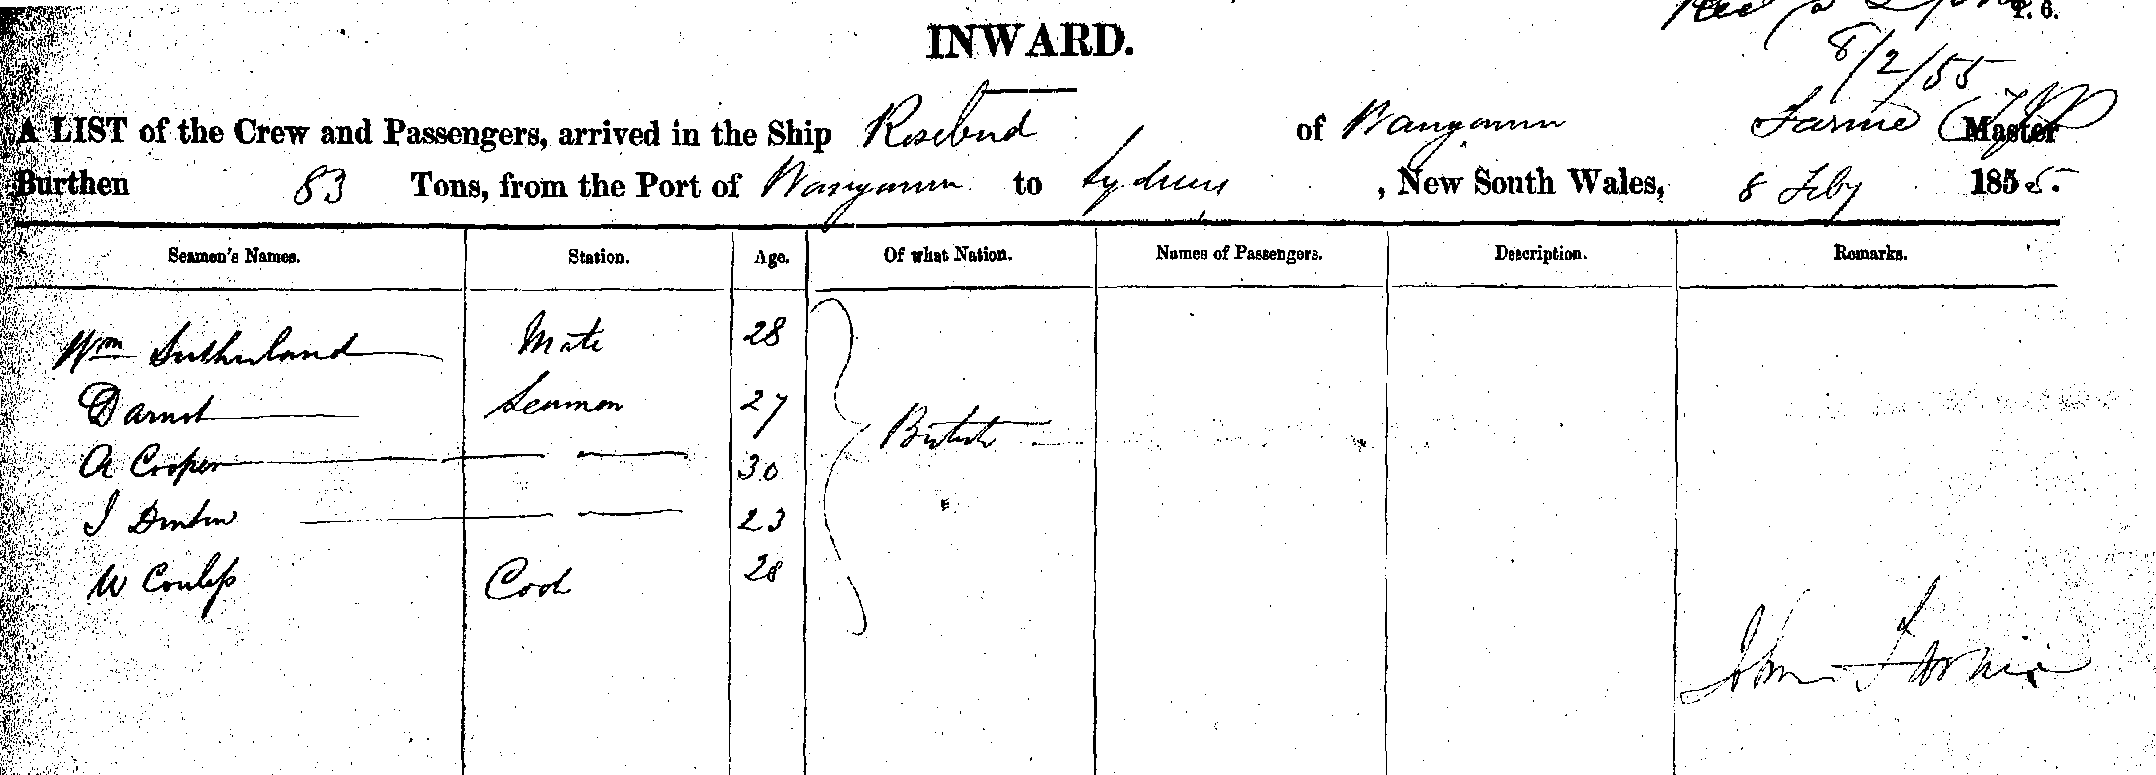 8/2/55
INWARD.
A LIST of the Crew and Passengers, arrived in the Ship Rosebud of Wanganui Farnie Master
Burthen 83 Tons, from the Port of Wanganui to Sydney, New South Wales, 8 Feby 1855.
Seamen's Names. Station. Age. Of what Nation. Names of Passengers. Description. Remarks.
Wm Sutherland Mate 28
Seaman 27
British
A Cooper 30
J 23
W Cook 28
John Farnie